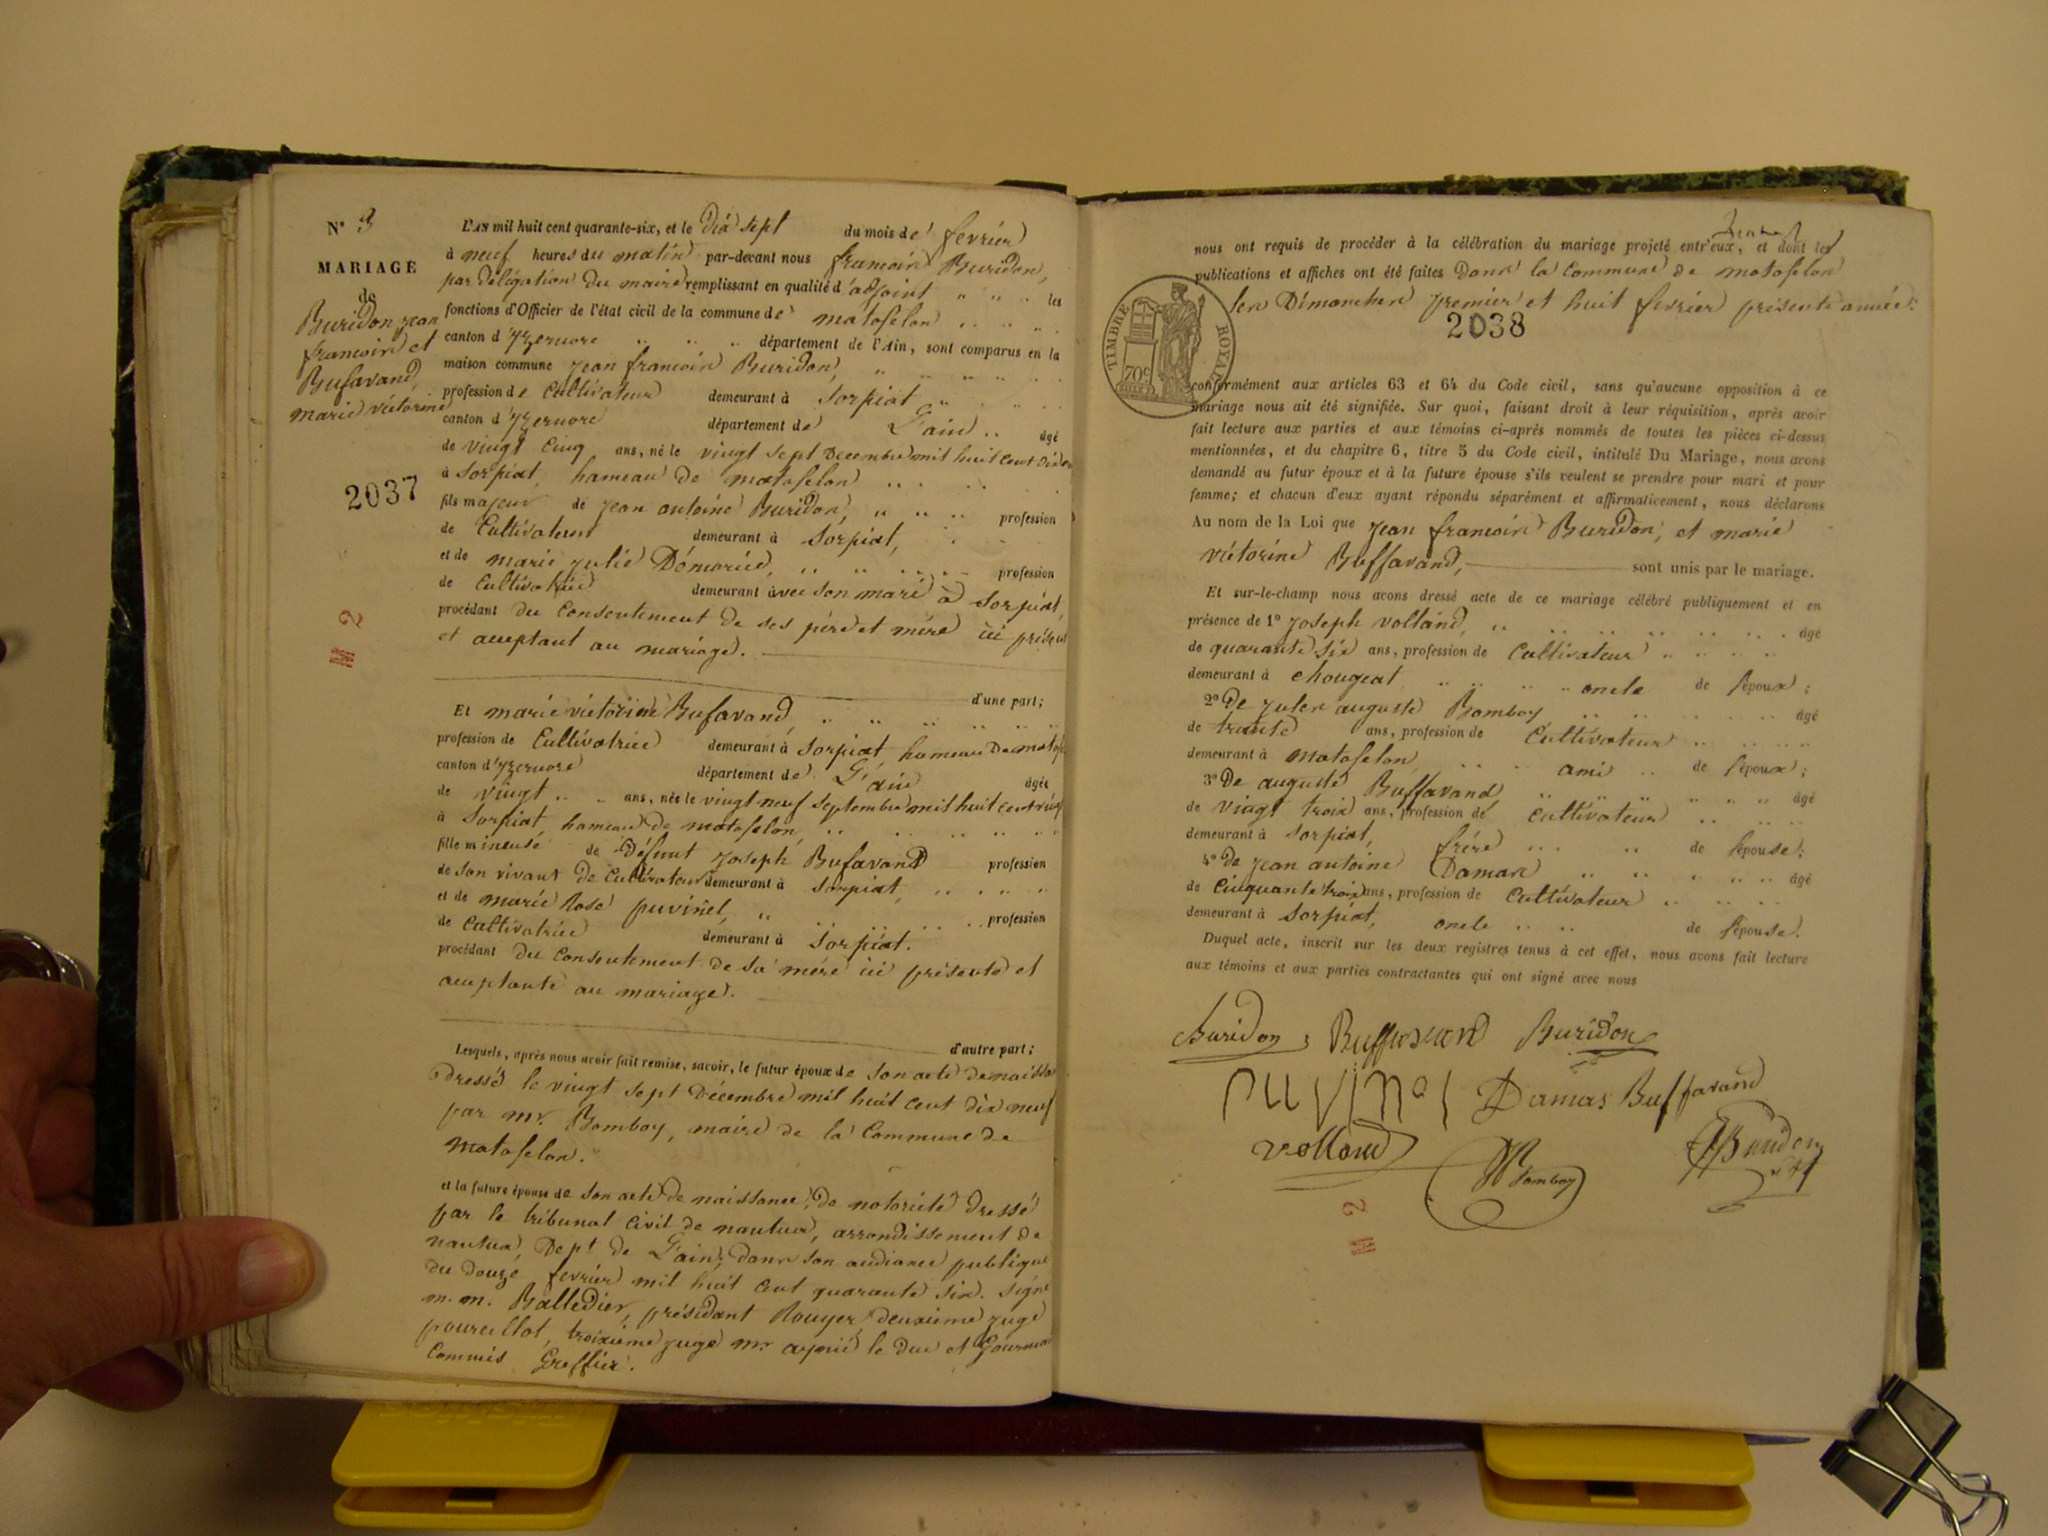 N° 3
MARIAGE
de
Buridon jean
francois et
Bufavand,
marie victorine
2037
L'AN mil huit cent quarante-six, et le dix sept du mois de fevrier
à neuf heures du matin par-devant nous francois Buridon,
par délégation du maire remplissant en qualité d'adjoint " " " les
fonctions d'Officier de l'état civil de la commune de matafelon
canton d'Yzernore " " " département de l'Ain, sont comparus en la
maison commune jean francois Buridon,
profession de Cultivateur demeurant à Sorpiat
canton d'Yzernore département de L'ain âgé
de vingt cinq ans, né le vingt sept Decembre mil huit cent dix
à Sorpiat, hameau de matafelon
fils majeur de jean antoine Buridon, profession
de Cultivateur demeurant à Sorpiat,
et de marie julie Démorié, profession
de Cultivatrice demeurant avec son mari à Sorpiat,
procédant du Consentement de ses père et mère ici présens
et acceptant au mariage.
d'une part;
Et marie victorine Bufavand
profession de Cultivatrice demeurant à Sorpiat, hameau De matafe
canton d'Yzernore département de L'ain âgée
de vingt ans, née le vingt neuf septembre mil huit cent vingt
à Sorpiat hameau de matafelon
fille mineure de Défunt joseph Bufavand profession
de son vivant de Cultivateur demeurant à Sorpiat,
et de marie Rose puvinel, profession
de Cultivatrice demeurant à Sorpiat.
procédant du Consentement de sa mére ici présente et
acceptante au mariage.
d'autre part;
Lesquels, après nous avoir fait remise, savoir, le futur époux de son acte de naissa
Dressé le vingt sept Décembre mil huit cent dix neuf
par mr. Bomboy, maire de la Commune de
matafelon.
et la future épouse de son acte de naissance, de notoriété dressé
par le tribunal Civil de nantua, arrondissement de
nantua, Dept. de L'ain, dans son audiance publique
du douze fevrier mil huit Cent quarante six. signé
m.m. Balledier, président Rouyer deuxième juge
pourcellot, troixième juge mr. le duc et
Commis Greffier.
nous ont requis de procéder à la célébration du mariage projeté entr'eux, et dont les
publications et affiches ont été faites Dans la Commune de matafelon
les Dimanches premier et huit fevrier présente année.
TIMBRE ROYAL
70c
2038
conformément aux articles 63 et 64 du Code civil, sans qu'aucune opposition à ce
mariage nous ait été signifiée. Sur quoi, faisant droit à leur réquisition, après avoir
fait lecture aux parties et aux témoins ci-après nommés de toutes les pièces ci-dessus
mentionnées, et du chapitre 6, titre 5 du Code civil, intitulé Du Mariage, nous avons
demandé au futur époux et à la future épouse s'ils veulent se prendre pour mari et pour
femme; et chacun d'eux ayant répondu séparément et affirmativement, nous déclarons
Au nom de la Loi que jean francois Buridon, et marie
victorine Buffavand, sont unis par le mariage.
Et sur-le-champ nous avons dressé acte de ce mariage célébré publiquement et en
présence de 1° joseph volland, âgé
de quarante six ans, profession de Cultivateur
demeurant à chougeat oncle de l'époux;
2° De jules auguste Bomboy âgé
de trente ans, profession de Cultivateur
demeurant à matafelon ami de l'époux;
3° De auguste Buffavand âgé
de vingt trois ans, profession de Cultivateur
demeurant à Sorpiat, frére de l'épouse;
4° de jean antoine Damas âgé
de Cinquante trois ans, profession de Cultivateur
demeurant à Sorpiat, oncle de l'épouse.
Duquel acte, inscrit sur les deux registres tenus à cet effet, nous avons fait lecture
aux témoins et aux parties contractantes qui ont signé avec nous
Buridon Buffavand Buridon
puvinel Damas Buffavand
volland Bomboy Buridon